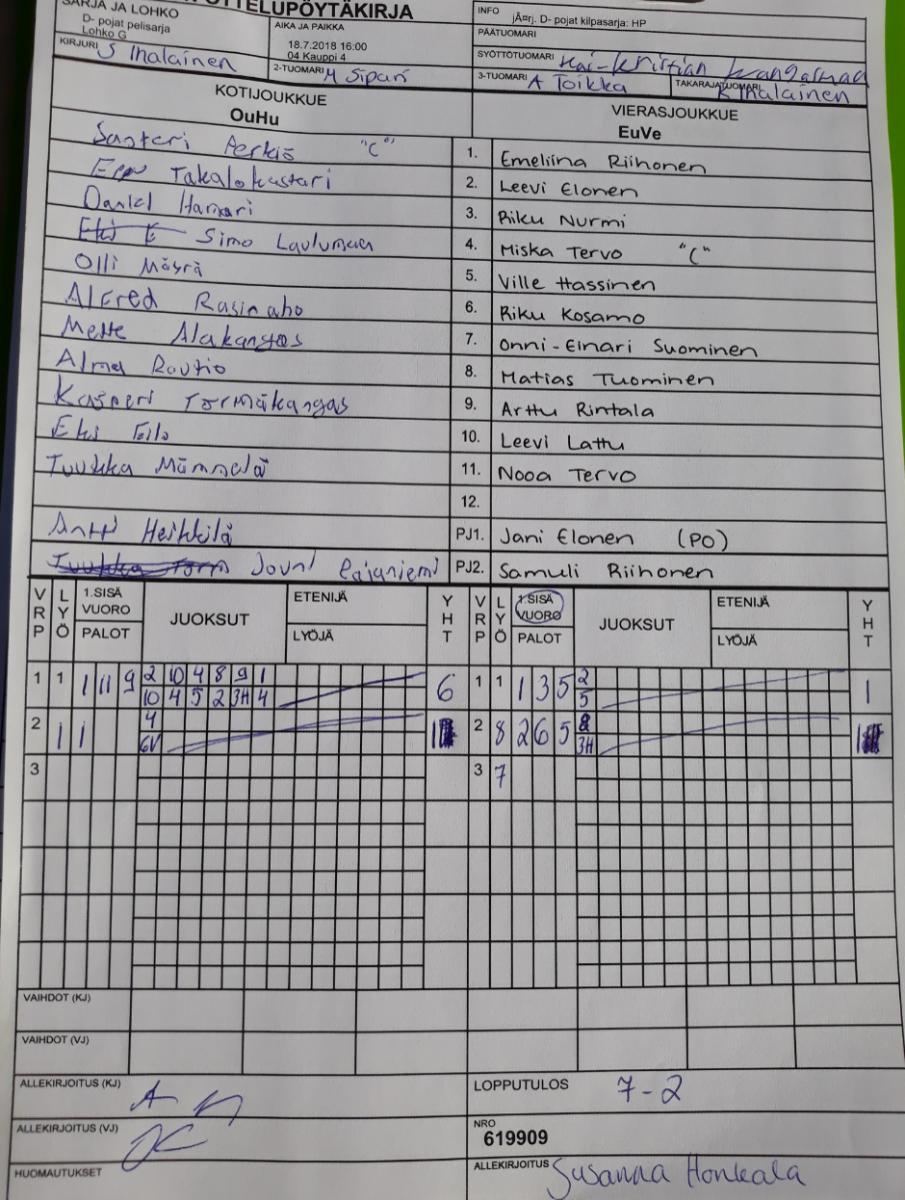 SARJA JA LOHKO
D- pojat pelisarja
Lohko G
KIRJURI S Ihalainen
OTTELUPÖYTÄKIRJA
AIKA JA PAIKKA
18.7.2018 16:00
04 Kauppi 4
2-TUOMARI M Sipari
INFO jÃ¤rj. D- pojat kilpasarja: HP
PÄÄTUOMARI
SYÖTTÖTUOMARI Kai-Kristian Kangasmaa
3-TUOMARI A Toikka
TAKARAJATUOMARI K Ihalainen
KOTIJOUKKUE
OuHu
VIERASJOUKKUE
EuVe
Santeri Perkiö "C" 1. Emeliina Riihonen
Eero Takalokastari 2. Leevi Elonen
Daniel Hamari 3. Riku Nurmi
Simo Laulumaa 4. Miska Tervo "C"
Olli Mäyrä 5. Ville Hassinen
Alfred Rasinaho 6. Riku Kosamo
Mette Alakangas 7. Onni-Einari Suominen
Alma Rautio 8. Matias Tuominen
Kasperi Törmäkangas 9. Arttu Rintala
Eki 10. Leevi Lattu
Tuukka Mämmelä 11. Nooa Tervo
12.
Antti Heikkilä PJ1. Jani Elonen (PO)
Jouni Pajaniemi PJ2. Samuli Riihonen
VRP LYÖ 1.SISÄ VUORO PALOT JUOKSUT ETENIJÄ LYÖJÄ YHT VRP LYÖ 1.SISÄ VUORO PALOT JUOKSUT ETENIJÄ LYÖJÄ YHT
1 1 1 11 9 2 10 4 8 9 1 6 1 1 1 3 5 2 1
10 4 5 2 3H 4 5
2 1 1 4 1 2 8 2 6 5 8 1
6V 3H
3 3 7
VAIHDOT (KJ)
VAIHDOT (VJ)
ALLEKIRJOITUS (KJ) LOPPUTULOS 7-2
ALLEKIRJOITUS (VJ) NRO
619909
HUOMAUTUKSET ALLEKIRJOITUS Susanna Honkala